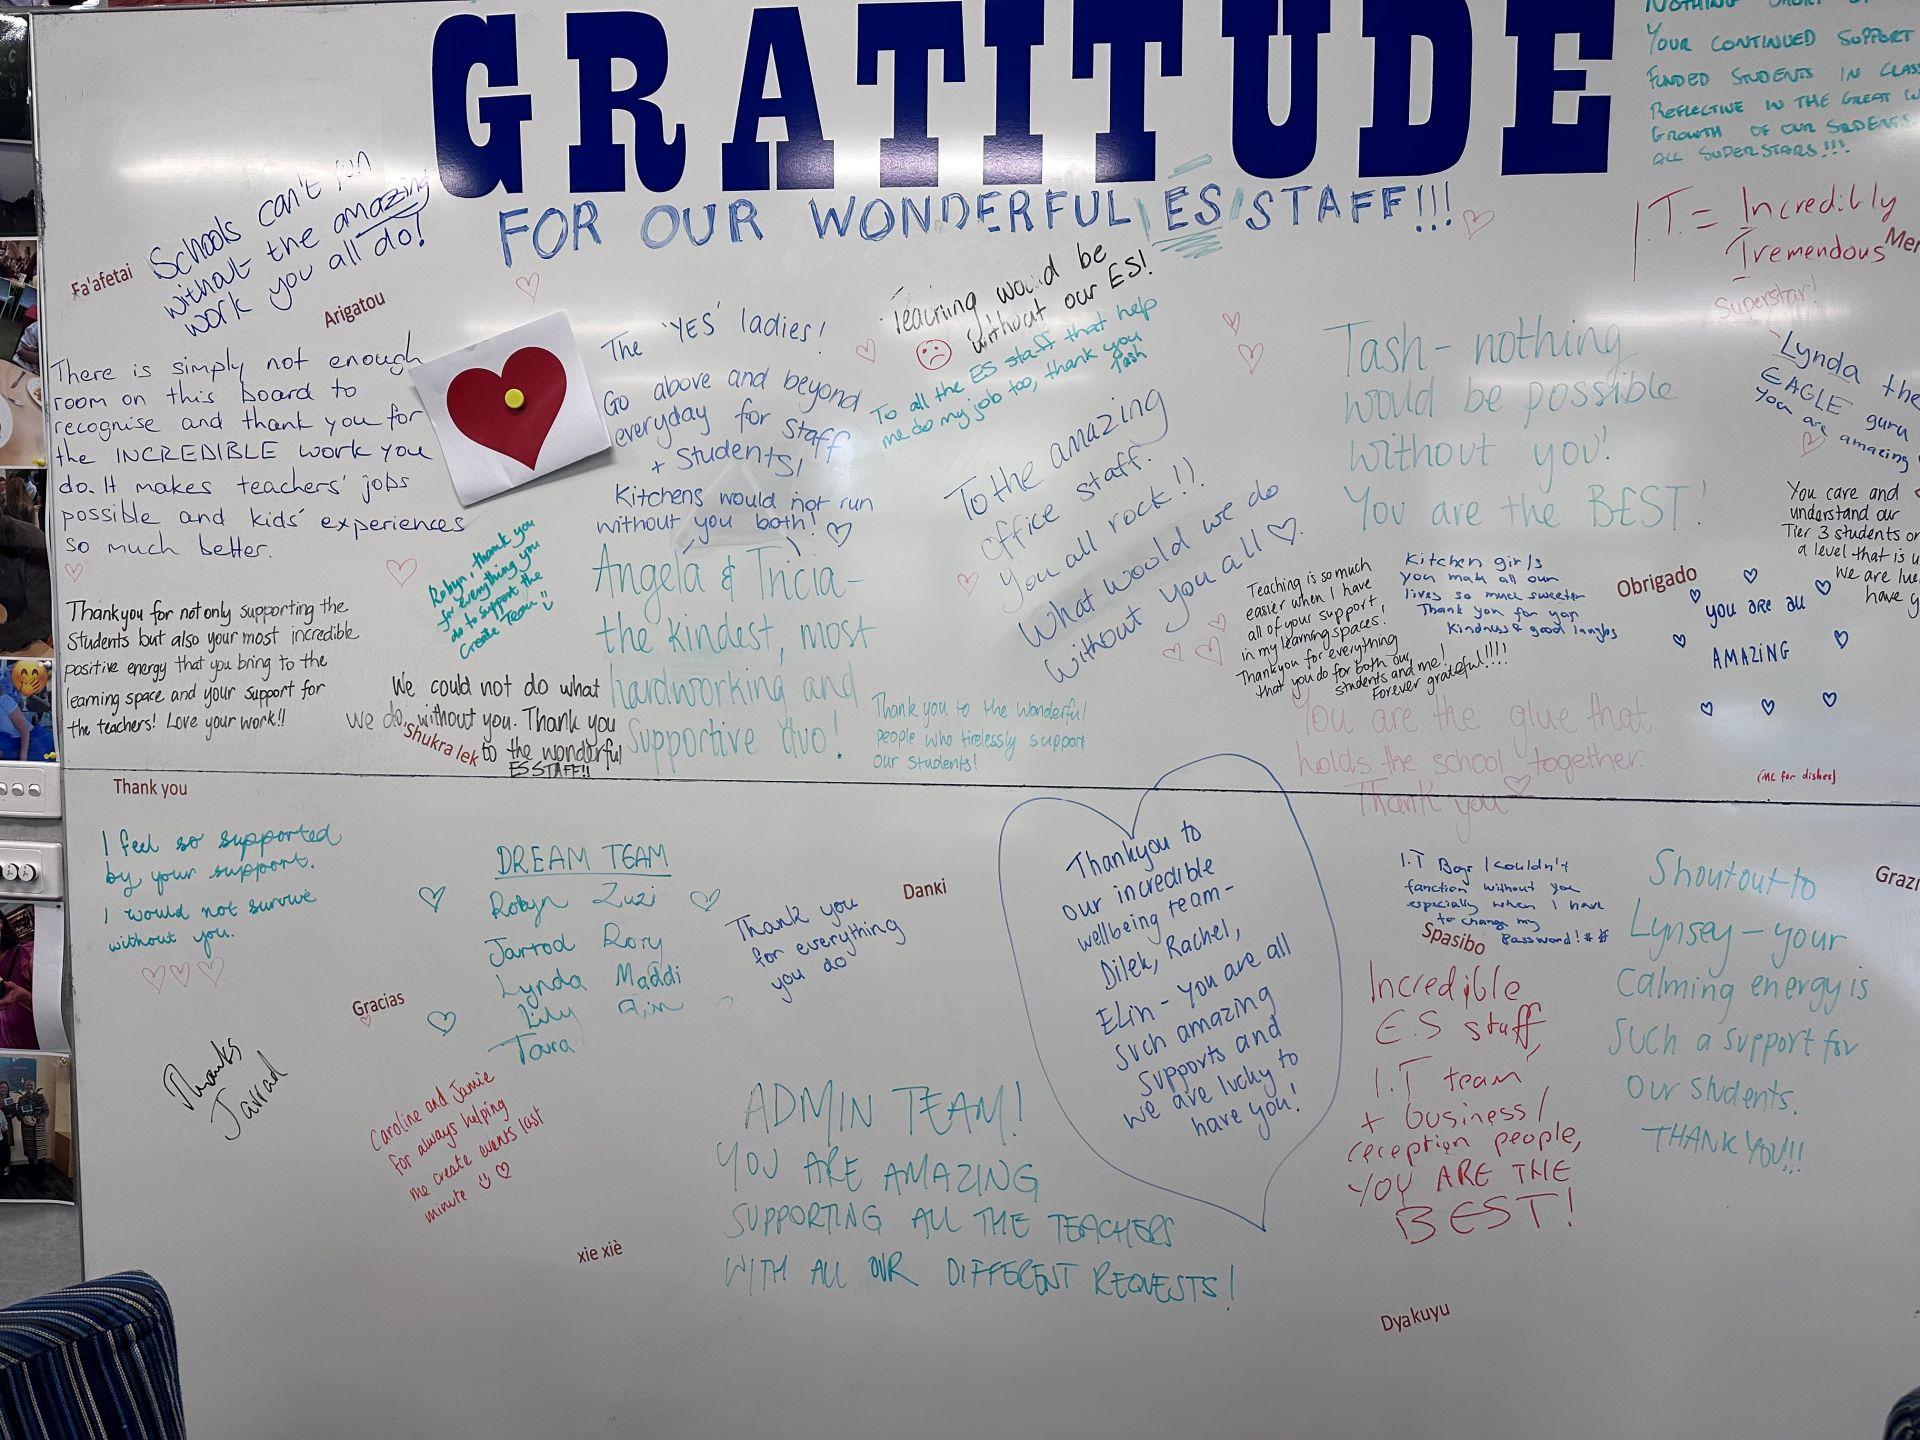 GRATITUDE
FOR OUR WONDERFUL ES STAFF!!!
NOTHING SHORT
YOUR CONTINUED SUPPORT
FUNDED STUDENTS IN CLASS
REFLECTIVE IN THE GREAT
GROWTH OF OUR STUDENTS.
ALL SUPERSTARS!!!
Schools can't run
without the amazing
work you all do!
Fa'afetai
Arigatou
I.T. = Incredibly
Tremendous
Superstar!
Mer
There is simply not enough
room on this board to
recognise and thank you for
the INCREDIBLE work you
do. It makes teachers' jobs
possible and kids' experiences
so much better.
The 'YES' ladies!
Go above and beyond
everyday for staff
+ Students!
Kitchens would not run
without you both!
Teaching would be
without our ES!
To all the ES staff that help
me do my job too, thank you
Tash
To the amazing
office staff.
You all rock!!
What would we do
without you all
Tash - nothing
would be possible
without you!
You are the BEST!
Lynda the
EAGLE guru
You are amazing
You care and
understand our
Tier 3 students on
a level that is
We are
have
Robyn, thank you
for everything you
do to support the
Create Team
Angela & Tricia -
the kindest, most
hardworking and
supportive duo!
Teaching is so much
easier when I have
all of your support
in my learning spaces!
Thankyou for everything
that you do for both our
students and me!
Forever grateful!!!!
Kitchen girls
you make all our
lives so much sweeter
Thank you for your
kindness & good laughs
Obrigado
you are all
AMAZING
Thankyou for not only supporting the
students but also your most incredible
positive energy that you bring to the
learning space and your support for
the teachers! Love your work!!
We could not do what
we do, without you. Thank you
to the wonderful
ES STAFF!!
Shukra lek
Thank you to the wonderful
people who tirelessly support
our students!
You are the glue that
holds the school together.
Thank you
(MC for dishes)
Thank you
I feel so supported
by your support.
I would not survive
without you.
DREAM TEAM
Robyn Zuzi
Jarrod Rory
Lynda Maddi
Lily
Tara
Thank you
for everything
you do
Danki
Thankyou to
our incredible
wellbeing team -
Dilek, Rachel,
Elin - you are all
such amazing
supports and
we are lucky to
have you!
I.T Boys I couldn't
function without you
especially when I have
to change my
Password!**
Spasibo
Shoutout to
Lynsey - your
calming energy is
such a support for
our students.
THANK YOU!!!
Grazi
Incredible
E.S staff,
I.T team
+ business/
reception people,
YOU ARE THE
BEST!
Gracias
Thanks
Jarrad
Caroline and Jamie
for always helping
me create events last
minute
ADMIN TEAM!
YOU ARE AMAZING
SUPPORTING ALL THE TEACHERS
WITH ALL OUR DIFFERENT REQUESTS!
xie xiè
Dyakuyu